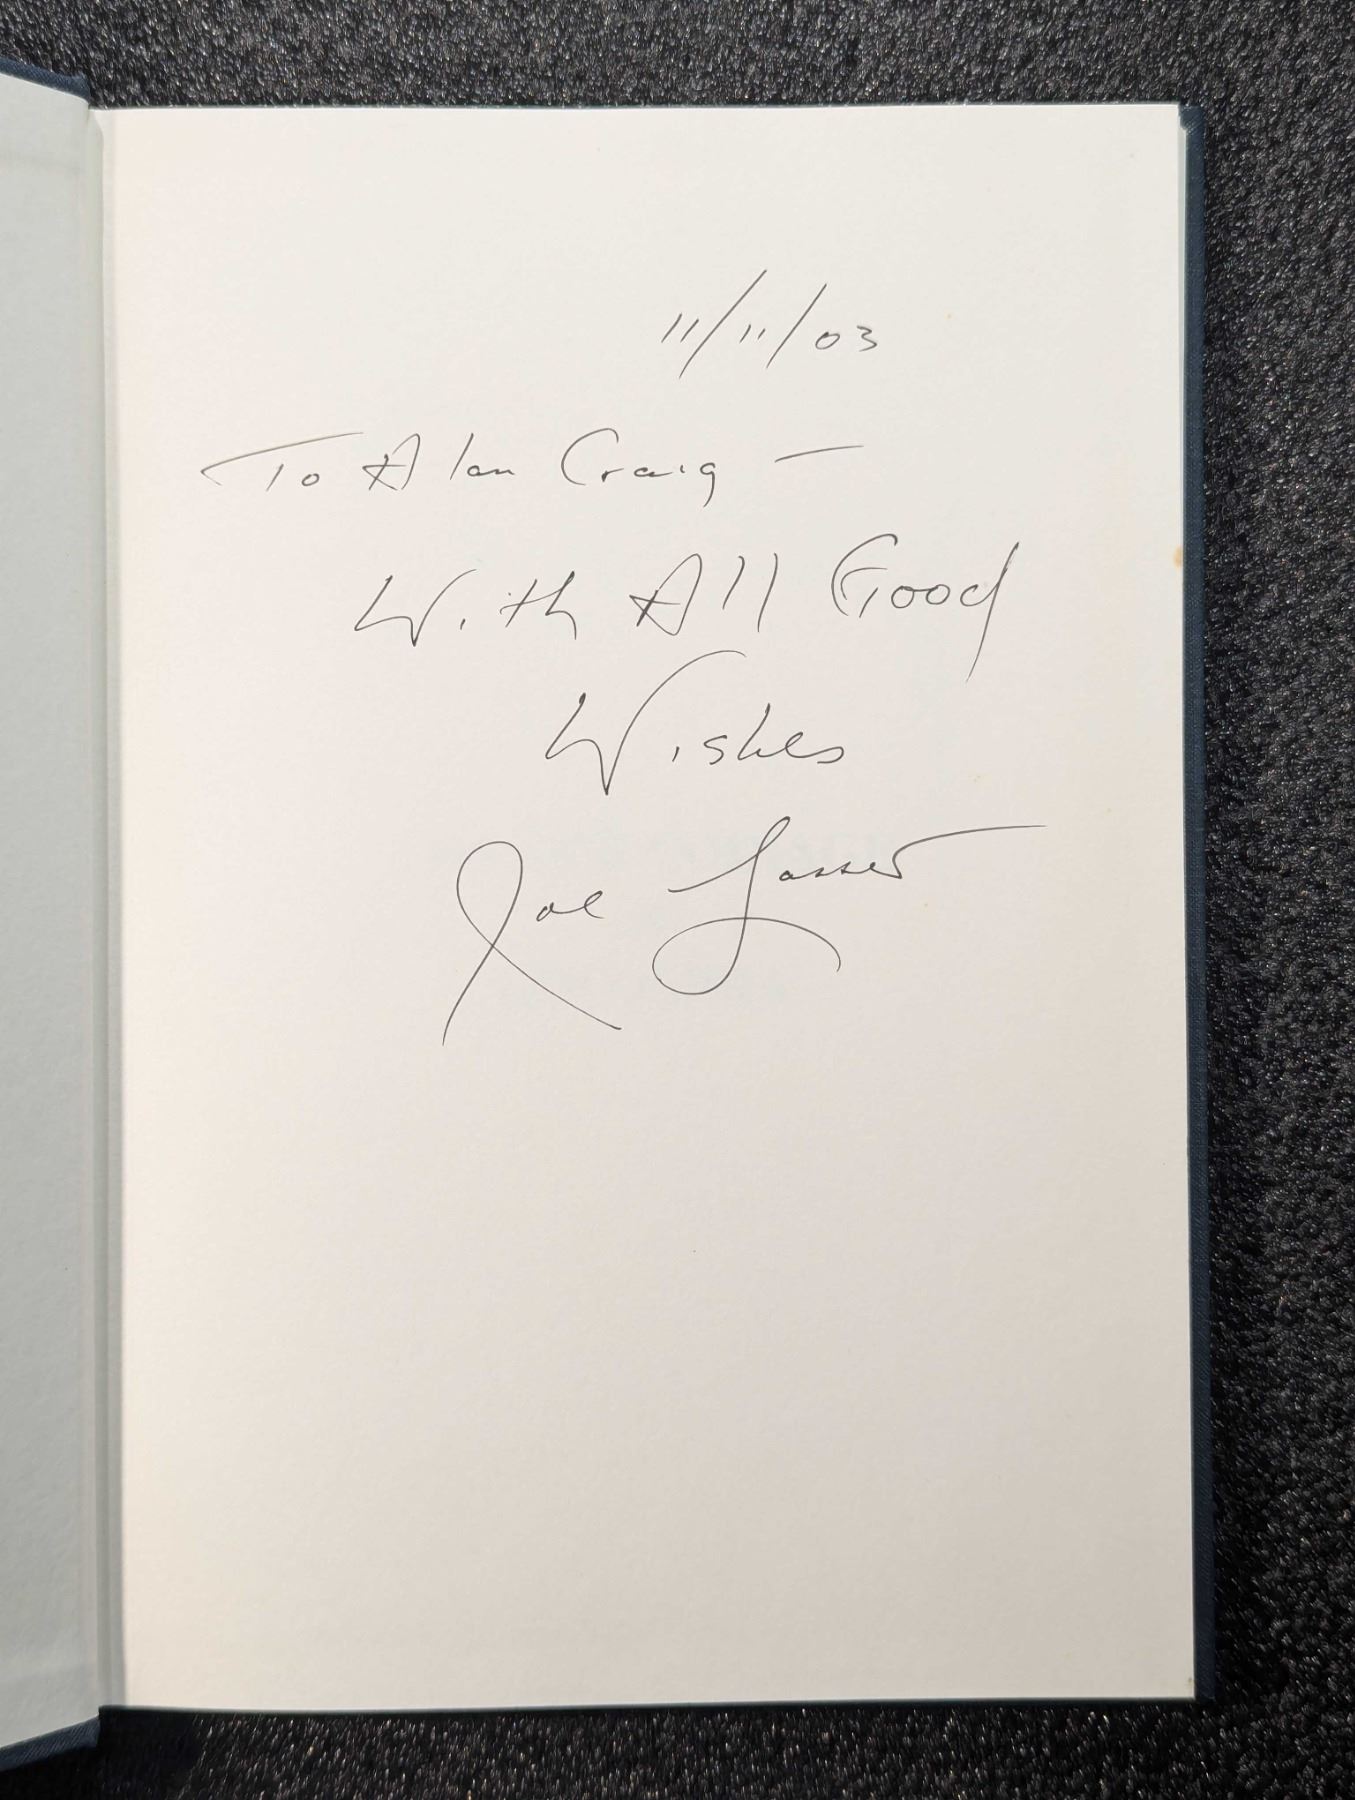 11/11/03
To Alan Craig —
With All Good
Wishes
Joe Lasser